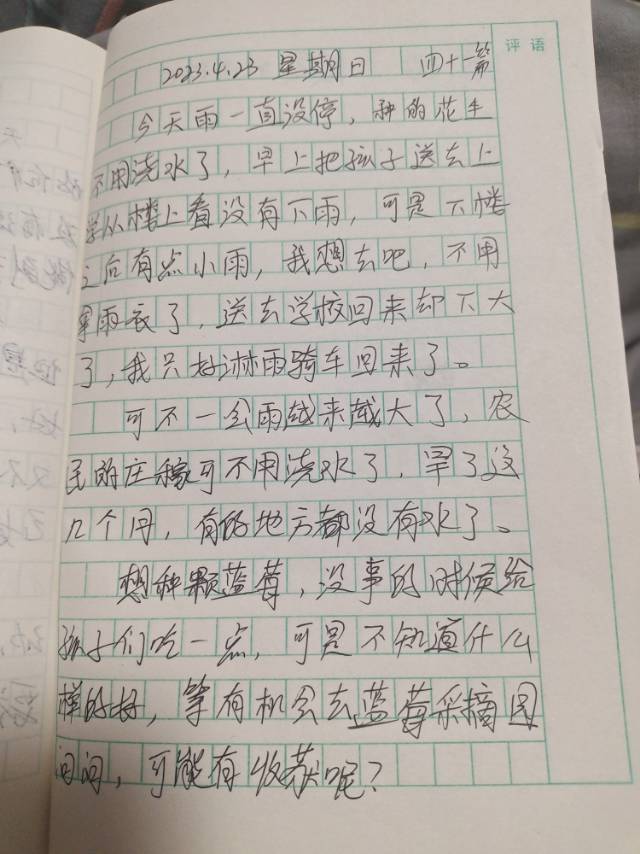 评语
2023.4.23 星期日 四十一篇
今天雨一直没停，种的花生
不用浇水了，早上把孩子送去上
学从楼上看没有下雨，可是下楼
之后有点小雨，我想去吧，不用
穿雨衣了，送去学校回来却下大
了，我只好淋雨骑车回来了。
可不一会雨越来越大了，农
民的庄稼可不用浇水了，旱了这
几个月，有的地方都没有水了。
想种颗蓝莓，没事的时候给
孩子们吃一点，可是不知道什么
样的好，等有机会去蓝莓采摘园
问问，可能有收获呢？